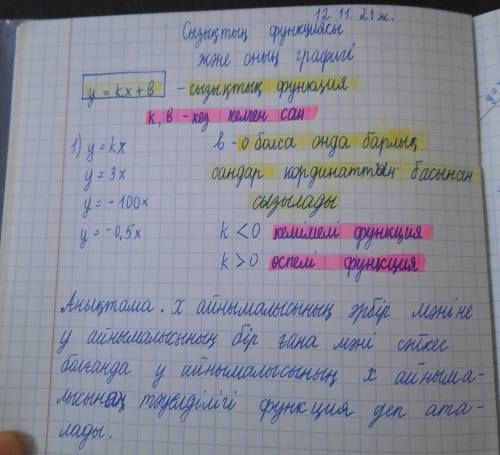 12.11.21ж.
Сызықтық функциясы
және оның графигі
y = kx + b - сызықтық функция
k, b - кез келген сан
1) y = kx b - 0 болса онда барлық
y = 3x сандар кординаттың басынан
y = -100x сызылады
y = -0,5x k < 0 кемімелі функция
k > 0 өспелі функция
Анықтама. x айнымалысының әрбір мәніне
y айнымалысының бір ғана мәні сәйкес
болғанда y айнымалысының x айныма-
лысынан тәуелділігі функция деп ата-
лады.